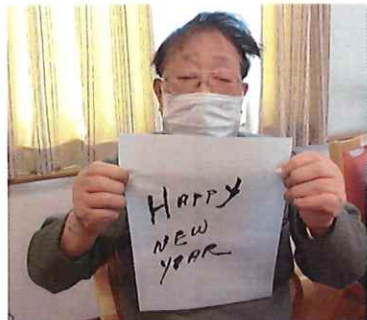 HAPPY
NEW
YEAR